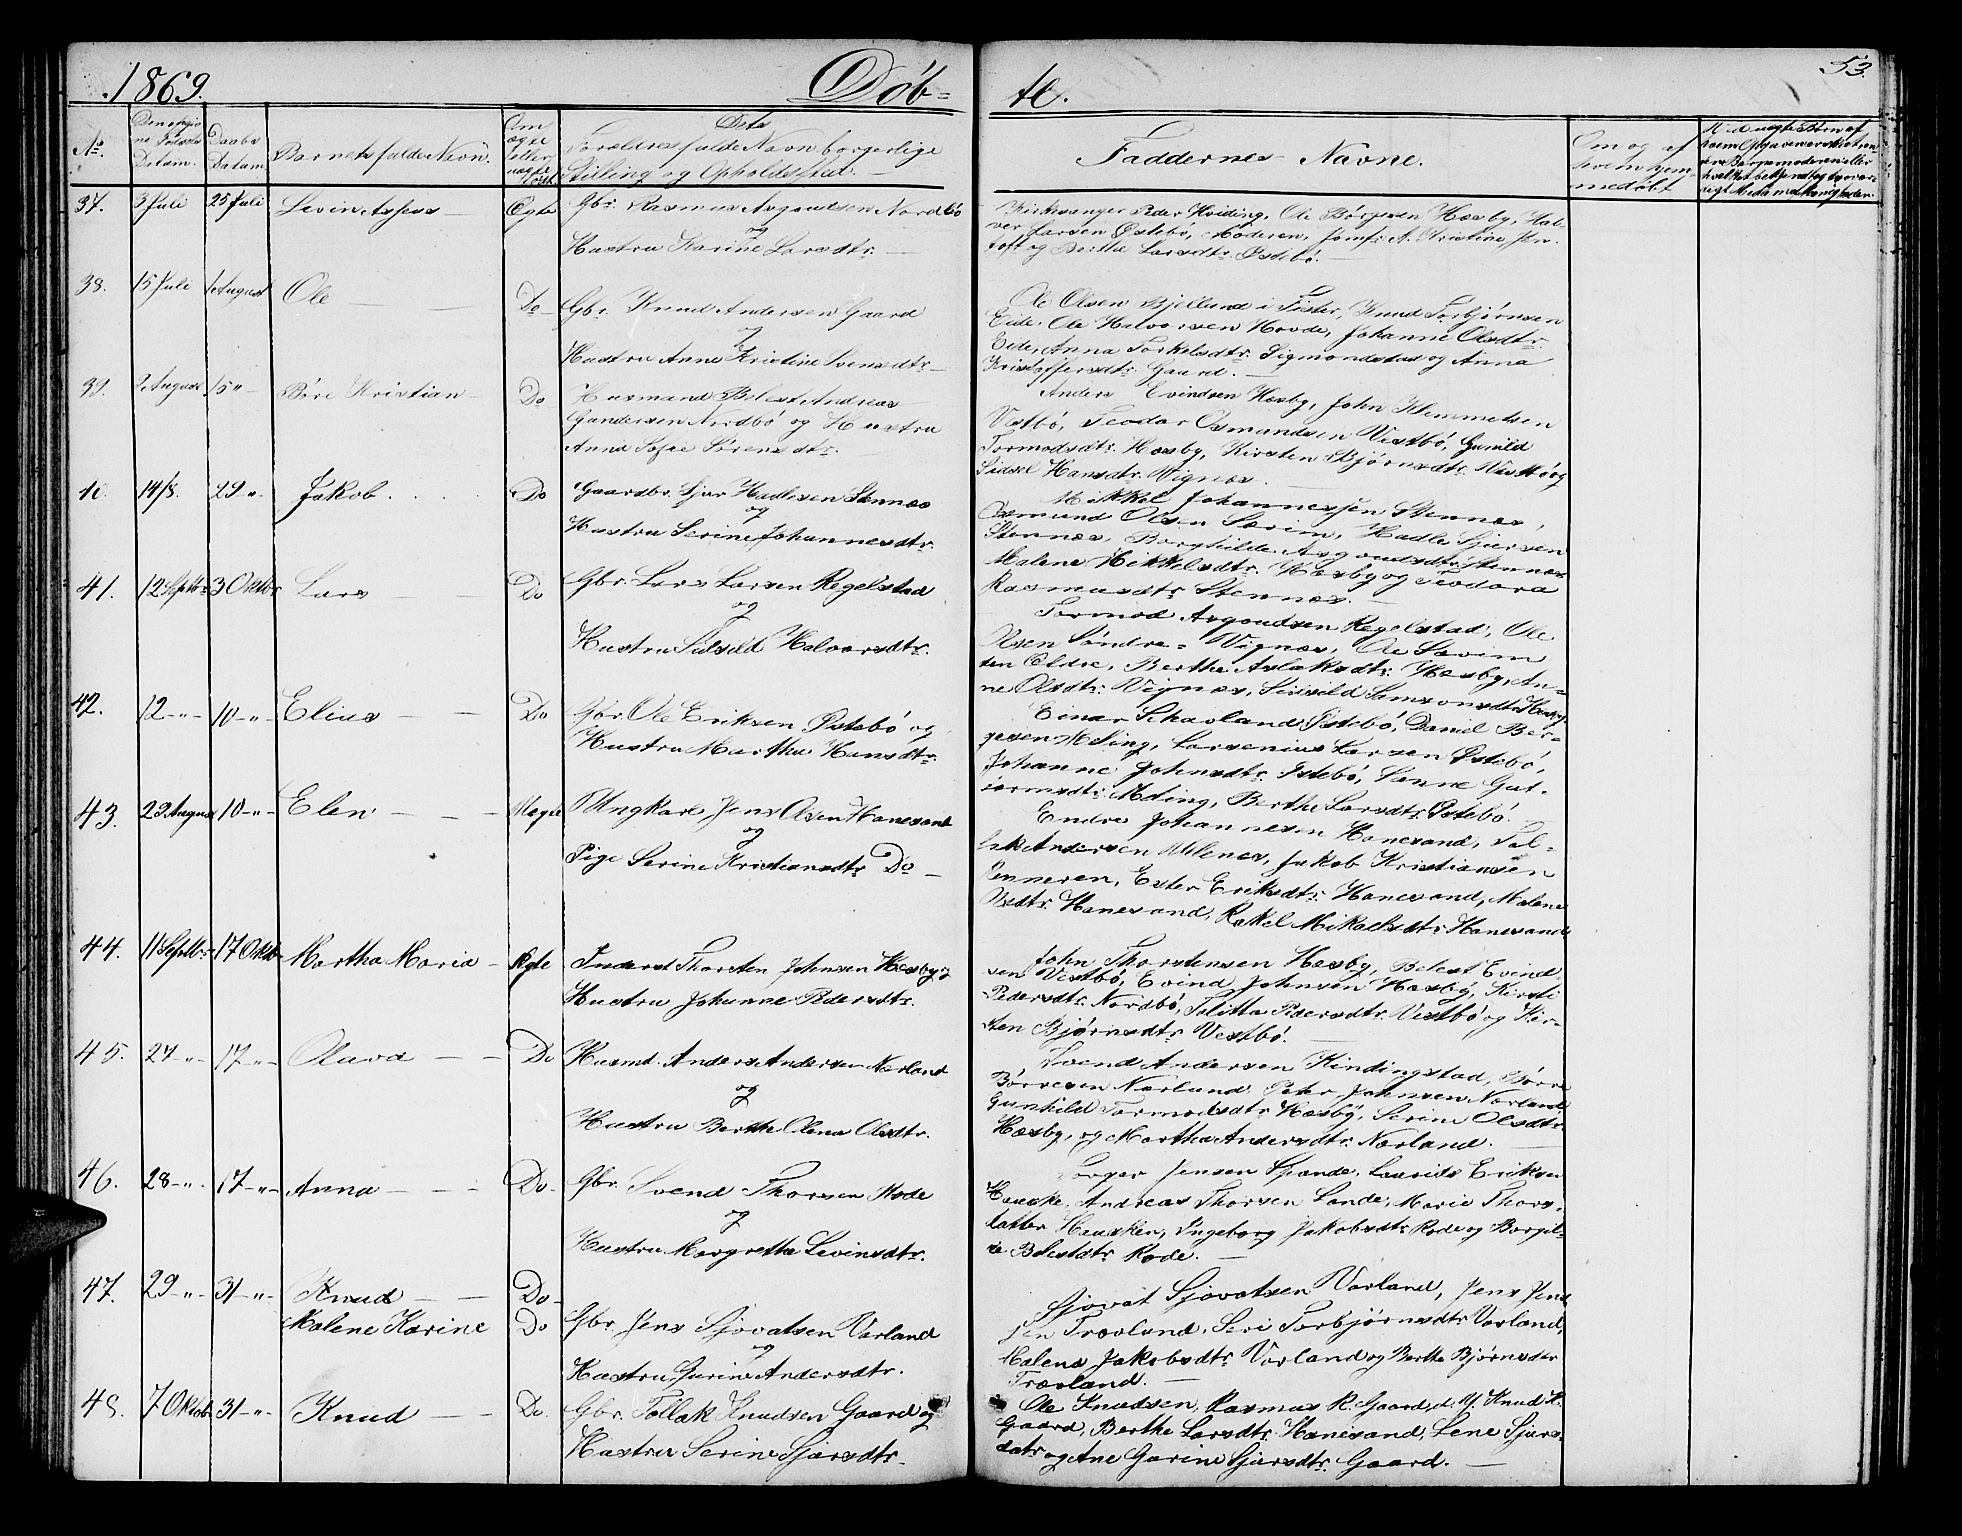 1869.
Döb=
te.
53.
No.
Daabs
Datum
Barnets fulde Navn.
Forældres fulde Navn borgerlige
Stilling og Opholdssted.
Faddernes Navne.
Om og af
hvem hjem-
medøbt.
37. 3 Juli 25 Juli Levin Ægte Gbr. Rasmus Asgoudsen Nordbö
og
Hustru Karine Larsdtr.
Kirkesanger Peder Hviding, Ole Børgesen Hæsby, Hal-
ver Larsen Østebö, Moderen, Jomfr. A. Kristine Jen-
toft og Berthe Larsdtr. Østebö.
38. 15 Juli 1 August Ole Do Gbr. Knud Andersen Gaard
og
Hustru Anne Kristine Svensdtr
Ole Olsen Bjelland i Fister, Knud Torbjørnsen
Eide, Ole Halvorsen Hovde, Johanne Olsdtr.
Eide, Anna Torkelsdtr. Sigmondstad og Anna
Kristoffersdtr. Gaard.
39. 2 August 15 " Böre Kristian Do Husmand Belest Andreas
Gundersen Nordbö og Hustru
Anna Sofie Sörensdtr.
Anders Evindsen Hæsby, John Klemmetsen
Vestbö, Teodor Osmundsen Vestbö, Gunild
Tormodsdtr. Hæsby, Kirsten Bjørnsdtr. Vestbö og
Sidsel Hansdtr. Vignæs.
40. 14/8. 29 " Jakob Do Gaardbr. Sjur Hadlesen Stennæs
og
Hustru Serine Johannesdtr.
Mikkel Johannessen Stennæs,
Osmund Olsen Sævim, Hadle Sjursen
Stennæs, Borghilde Asgoudsdtr. Stennæs
Malene Mikkelsdtr. Hæsby og Teodora
Rasmusdtr. Stennæs.
41. 12 Septbr. 3 Oktbr. Lars Do Gbr. Lars Larsen Regelstad
og
Hustru Sidsild Halvorsdtr.
Tormod Asgoudsen Regelstad, Ole
Olsen Søndre= Vignæs, Ole Sævim
den Ældre, Berthe Aslaksdtr. Hæsby, An-
ne Olsdtr. Vignæs, Sidsild Samsonsdtr. Hæsby
42. 12 " 10 " Elius Do Gbr. Ole Eriksen Østebö og
Hustru Martha Hansdtr.
Einar Schavland Østebö, Daniel Bør-
gesen Meling, Larsenius Larsen Østebö,
Johanne Johnsdtr. Østebö, Sanne Gut-
tormsdtr. Meling, Berthe Larsdtr. Østebö.
43. 29 August 10 " Elen Uægte Ungkarl Jens Olsen Hanesand
og
Pige Serine Kristiansdtr Do
Endre Johannesen Hanesand, Tol-
lak Andersen Ullenes, Jakob Kristiansen
Vermeren, Ester Eriksdtr. Hanesand, Malene
Olsdtr. Hanesand, Rakel Mikaelsdtr. Hanesand
44. 11 Septbr. 17 Oktbr Martha Maria Ægte Inderst Thorsten Johnsen Hæsby og
Hustru Johanne Pedersdtr.
John Thorstensen Hæsby, Belest Evind-
sen Vestbö, Evind Johnsen Hæsby, Kirsti
Pedersdtr. Nordbö, Talitta Pedersdtr. Vestbö og Kir-
sten Bjørnsdtr. Vestbö.
45. 27 " 17 " Olava Do Husmd. Anders Andersen Nærland
og
Hustru Berthe Olena Olsdtr.
Svend Andersen Kindingstad, Børre
Børresen Nærland, Peter Johnsen Nærland
Gunhild Tormodsdtr. Hæsby, Serine Olsdtr.
Hæsby, og Martha Andersdtr. Nærland.
46. 28 " 17 " Anna Do Gbr. Svend Thorsen Rode
og
Hustru Margrethe Levinsdtr.
Torger Jensen Spande, Laurids Eriksen
Hauske, Andreas Thorsen Lande, Marie Thors-
datter Hausken, Ingeborg Jakobsdtr. Rode og Borgil-
de Belestdtr. Rode.
47. 29 " 31 " Knud Do
Malene Karine Do Gbr. Jens Sjovatsen Varland
og
Hustru Gurine Andersdtr.
Sjovat Sjovatsen Varland, Jens Jen-
sen Trævland, Seri Torbjørnsdtr. Varland,
Malene Jakobsdtr. Varland og Berthe Bjørnsdtr
Trævland.
48. 7 Oktob 31 " Knud Do. Gbr. Tollak Knudsen Gaard og
Hustru Serine Sjursdtr.
Ole Knudsen, Rasmus R. Gaard, d. Y. Knud K.
Gaard, Berthe Larsdtr. Hanesand, Lene Sjurs-
datr og Ane Gurine Sjursdtr. Gaard.